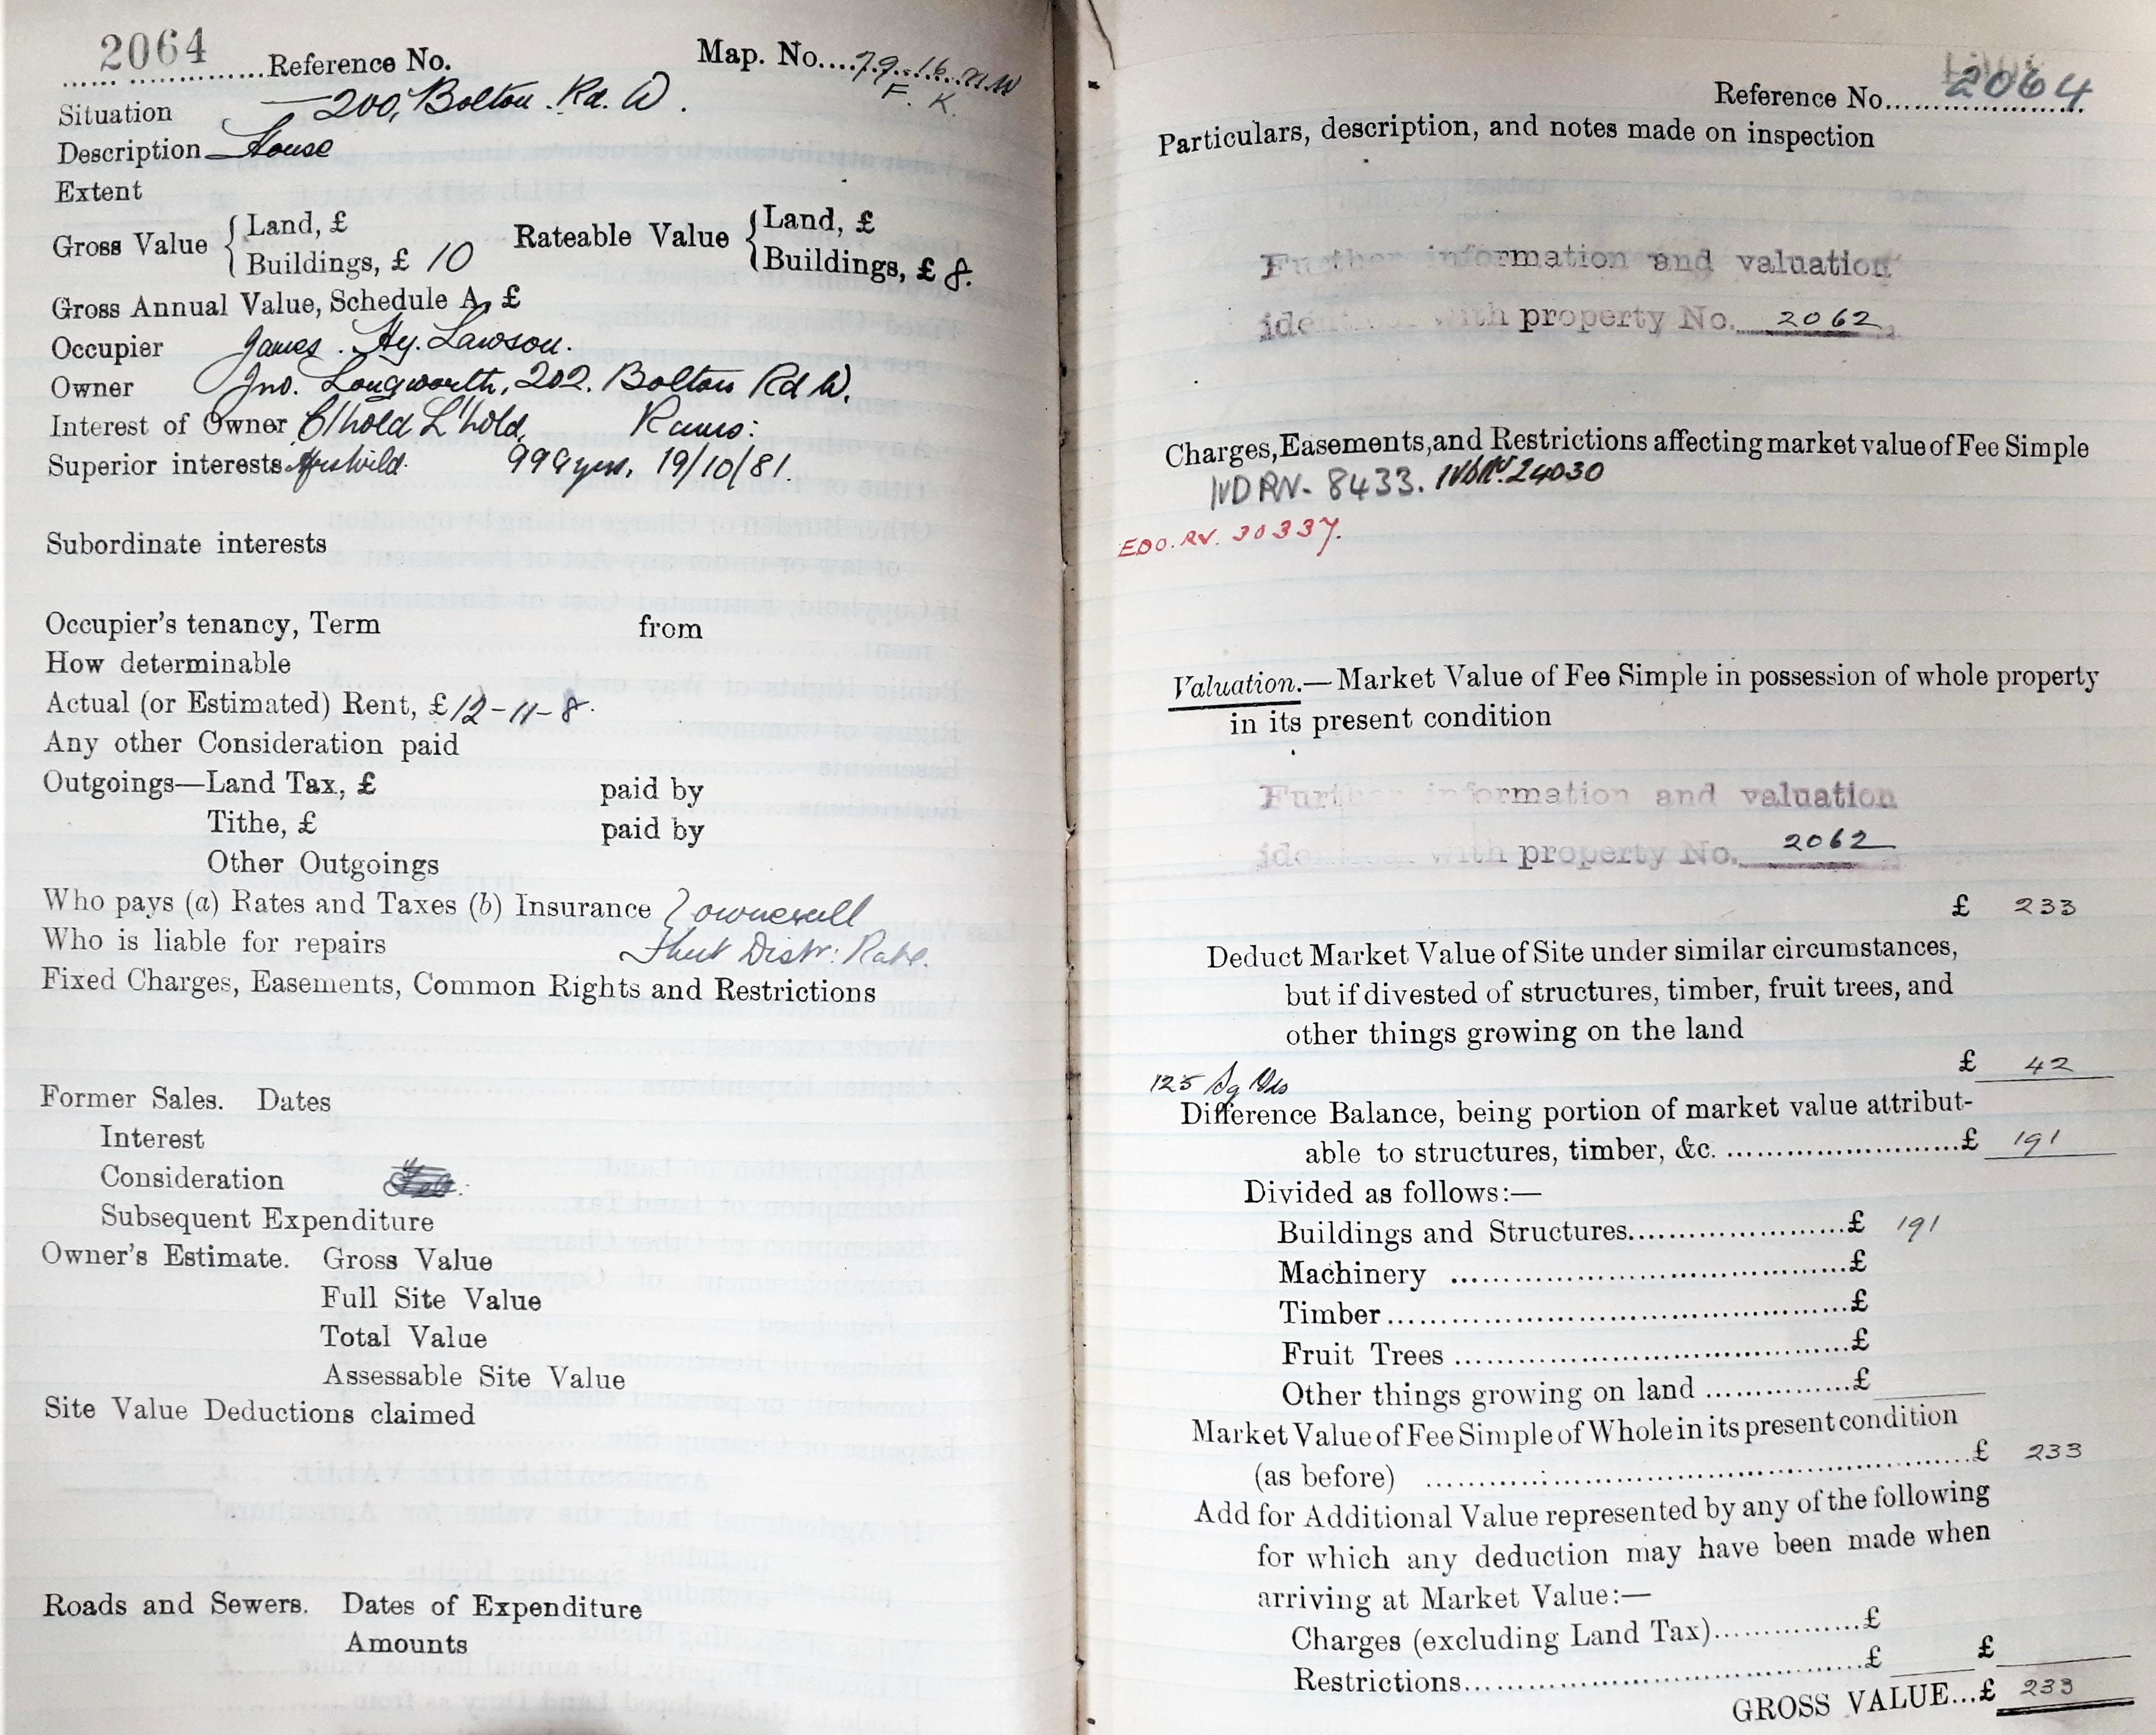 2064 Reference No. Map. No. 79.16.N.W
F. K.
Situation 200, Bolton Rd. W.
Description House
Extent
Gross Value { Land, £
Buildings, £ 10
Rateable Value { Land, £
Buildings, £ 8.
Gross Annual Value, Schedule A, £
Occupier James. Hy. Lawson.
Owner Jno. Longworth, 202. Bolton Rd W.
Interest of Owner L'hold Rams:
Superior interests 999 yrs, 19/10/81.
Subordinate interests
Occupier's tenancy, Term from
How determinable
Actual (or Estimated) Rent, £ 12-11-8.
Any other Consideration paid
Outgoings—Land Tax, £ paid by
Tithe, £ paid by
Other Outgoings
Who pays (a) Rates and Taxes (b) Insurance
Who is liable for repairs Distr: Rate.
Fixed Charges, Easements, Common Rights and Restrictions
Former Sales. Dates
Interest
Consideration
Subsequent Expenditure
Owner's Estimate. Gross Value
Full Site Value
Total Value
Assessable Site Value
Site Value Deductions claimed
Roads and Sewers. Dates of Expenditure
Amounts
Reference No. 2064
Particulars, description, and notes made on inspection
Further information and valuation
identical with property No. 2062
Charges, Easements, and Restrictions affecting market value of Fee Simple
IVD RN. 8433. 24030
EDO. RV. 30337.
Valuation.—Market Value of Fee Simple in possession of whole property
in its present condition
Further information and valuation
identical with property No. 2062
£ 233
Deduct Market Value of Site under similar circumstances,
but if divested of structures, timber, fruit trees, and
other things growing on the land
£ 42
125 Sq Yds
Difference Balance, being portion of market value attribut-
able to structures, timber, &c. £ 191
Divided as follows:—
Buildings and Structures £ 191
Machinery £
Timber £
Fruit Trees £
Other things growing on land £
Market Value of Fee Simple of Whole in its present condition
(as before) £ 233
Add for Additional Value represented by any of the following
for which any deduction may have been made when
arriving at Market Value:—
Charges (excluding Land Tax) £
Restrictions £ £
GROSS VALUE...£ 233